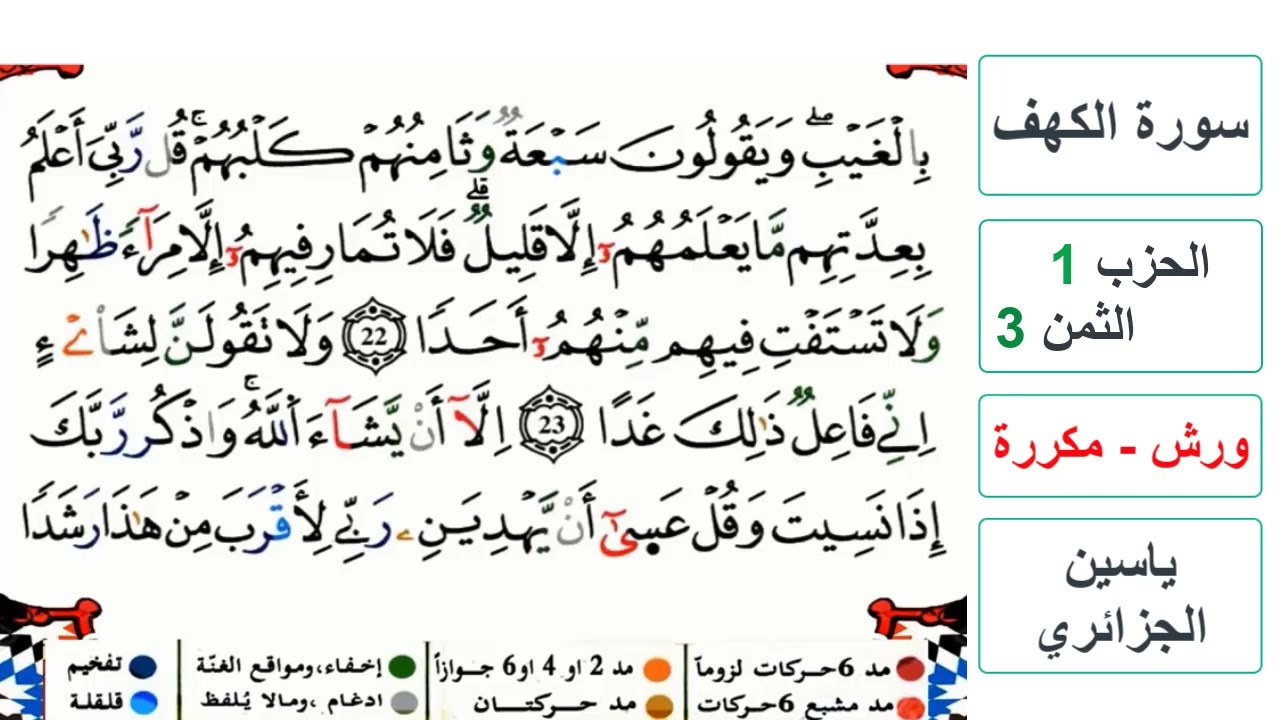 بِالْغَيْبِۖ وَيَقُولُونَ سَبْعَةٞ وَثَامِنُهُمْ كَلْبُهُمْۚ قُل رَّبِّيَ أَعْلَمُ
بِعِدَّتِهِم مَّا يَعْلَمُهُمُۥٓ إِلَّا قَلِيلٞۗ فَلَا تُمَارِ فِيهِمُۥٓ إِلَّا مِرَآءٗ ظَٰهِرٗا
وَلَا تَسْتَفْتِ فِيهِم مِّنْهُمُۥٓ أَحَدٗا 22 وَلَا تَقُولَنَّ لِشَاْےْءٍ
اِنِّے فَاعِلٞ ذَٰلِكَ غَدًا 23 اِلَّآ أَنْ يَّشَآءَ اَللَّهُۚ وَاذْكُر رَّبَّكَ
إِذَا نَسِيتَ وَقُلْ عَسۭيٰٓ أَنْ يَّهْدِيَنِۦ رَبِّے لِأَقْرَبَ مِنْ هَٰذَا رَشَدٗا
مد 6 حركات لزوماً
مد 2 او 4 او 6 جوازاً
إخفاء، ومواقع الغنّة
تفخيم
مد مشبع 6 حركات
مد حركتان
ادغام، ومالا يُلفظ
قلقلة
سورة الكهف
الحزب 1
الثمن 3
ورش - مكررة
ياسين
الجزائري